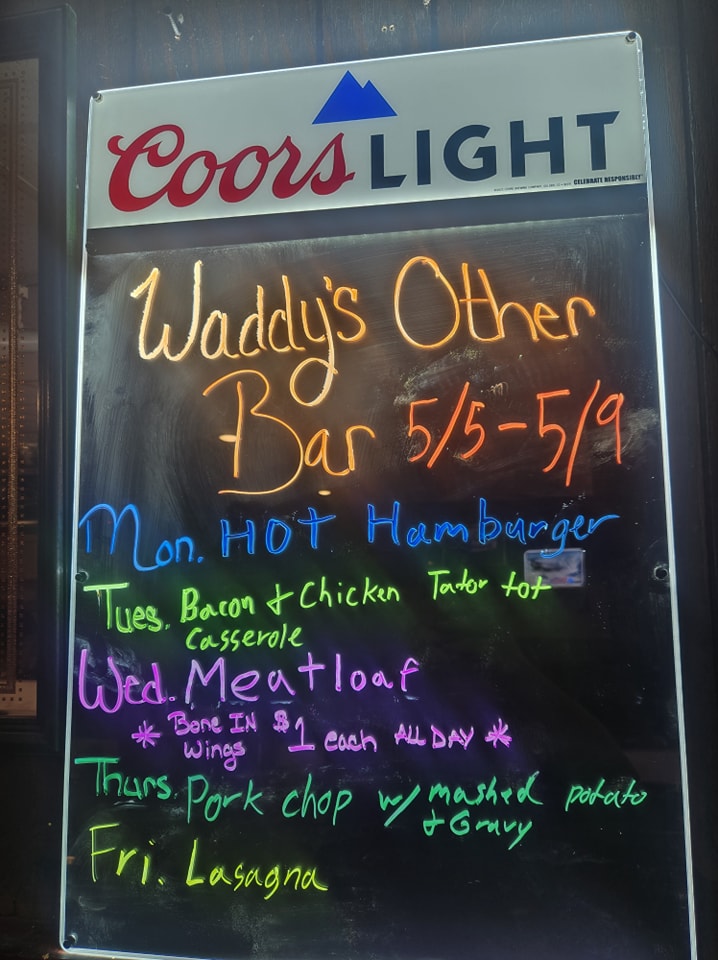 Coors LIGHT
CELEBRATE RESPONSIBLY
Waddy's Other
Bar 5/5-5/9
Mon. HOT Hamburger
Tues. Bacon & Chicken Tator tot
Casserole
Wed. Meatloaf
* Bone IN $1 each ALL DAY *
Wings
Thurs. Pork chop w/ mashed potato
& Gravy
Fri. Lasagna